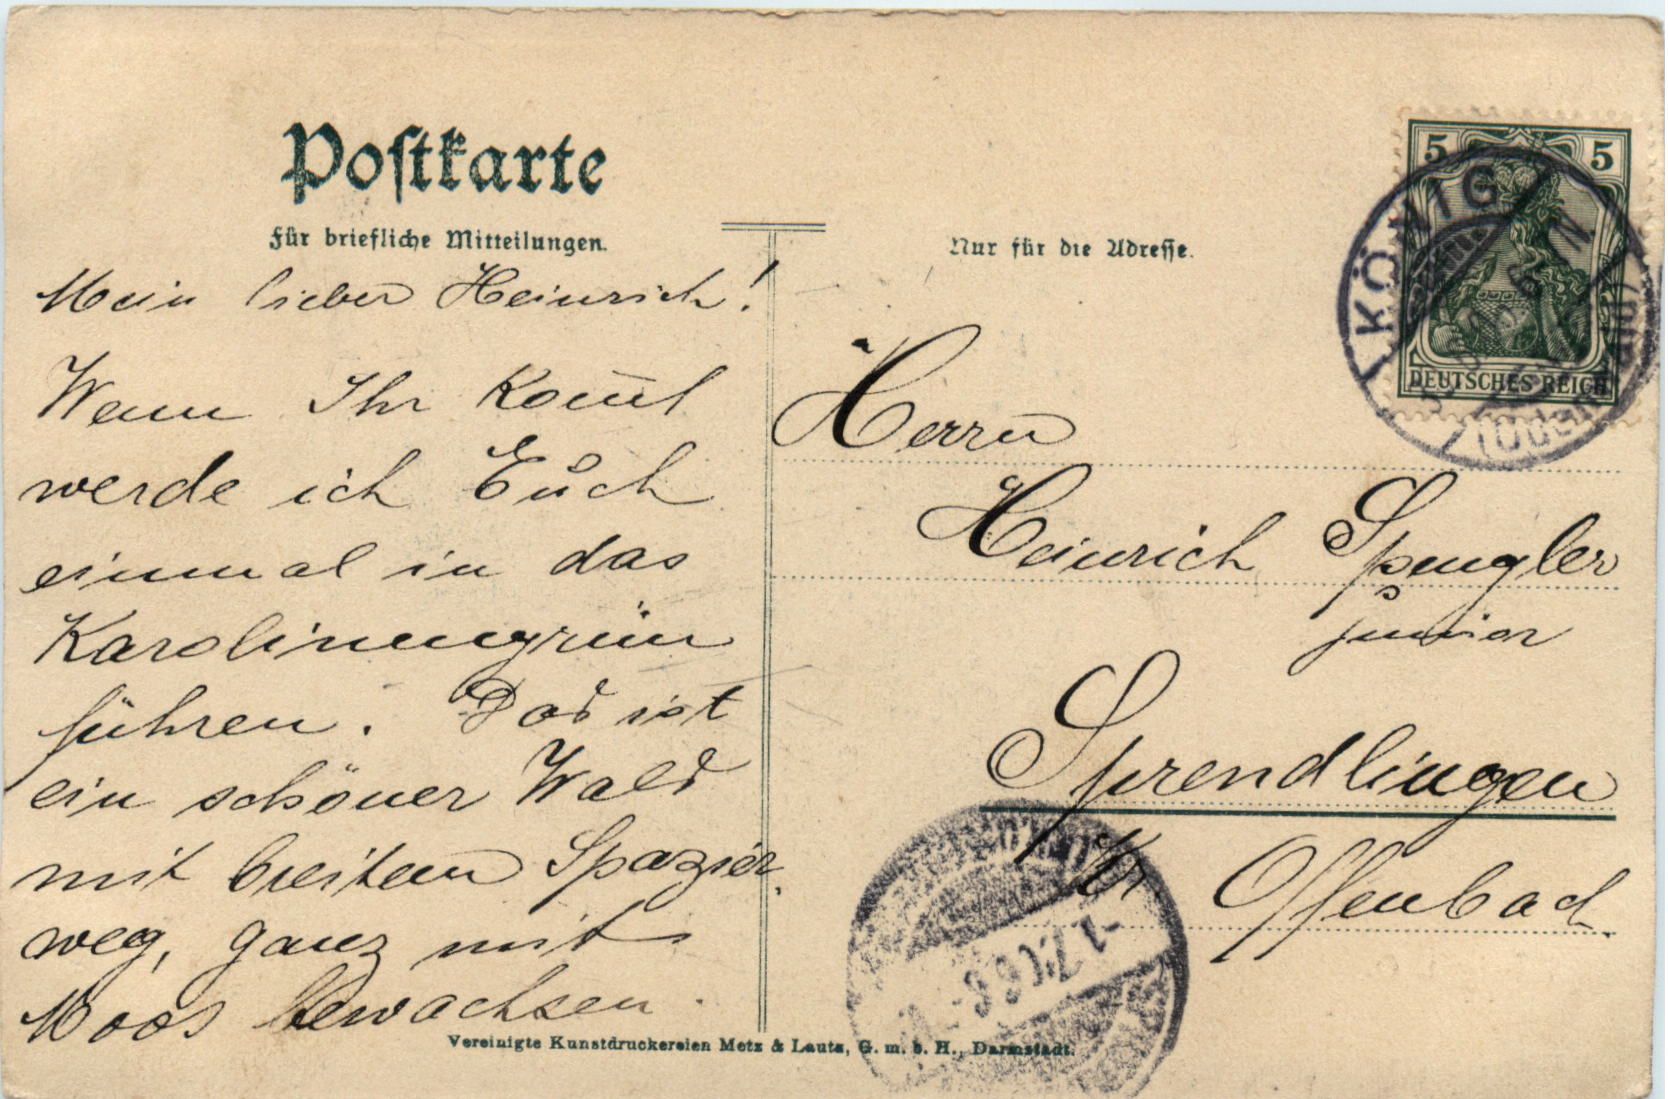 Postkarte
Für briefliche Mitteilungen.
Nur für die Adresse.
Mein lieber Heinrich!
Wenn Ihr kom̅t
werde ich Euch
einmal in das
Karolinengrün
führen. Das ist
ein schöner Wald
mit breitem Spazier-
weg, ganz mit
Moos bewachsen.
Herrn
Heinrich Spengler
junior
Sprendlingen
Kr. Offenbach
5 5
DEUTSCHES REICH
KÖNIG
(Odenwald)
Vereinigte Kunstdruckereien Metz & Lautz, G. m. b. H., Darmstadt.